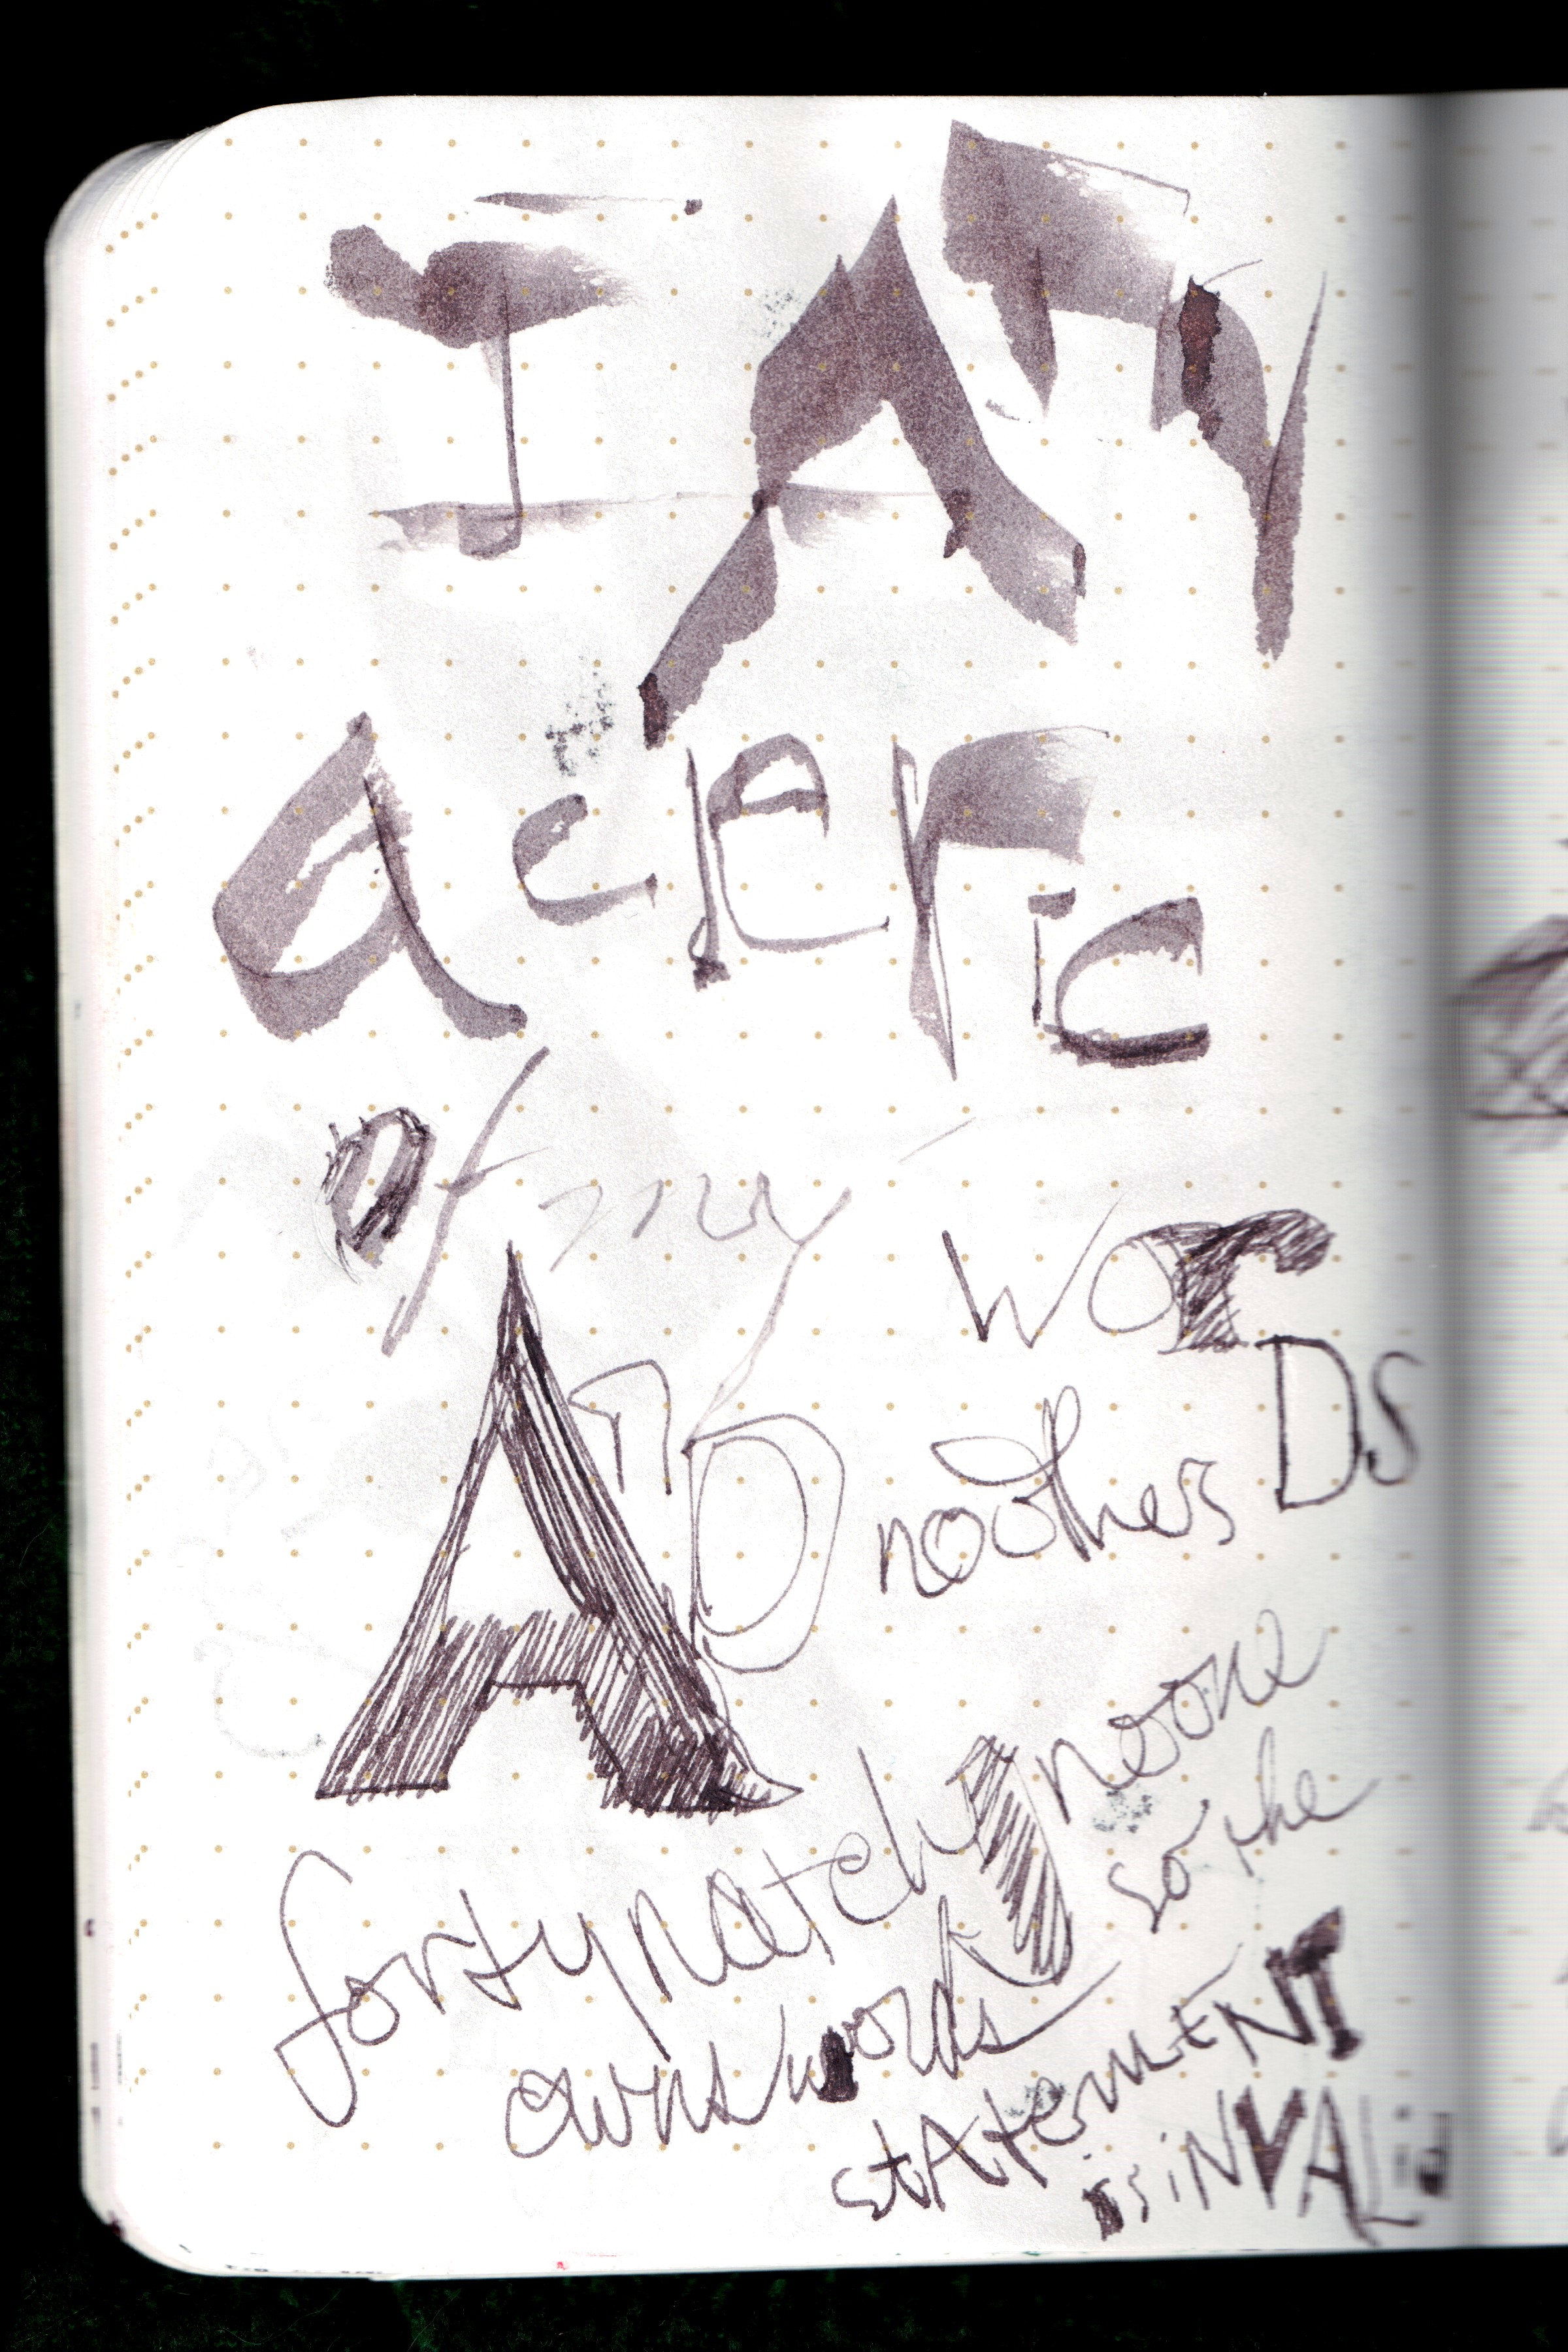 I AM
a cleric
of my
wor
DS
AnD
no others
fortunately no one
owns words
so the
stAtemeNT
is iNVALid